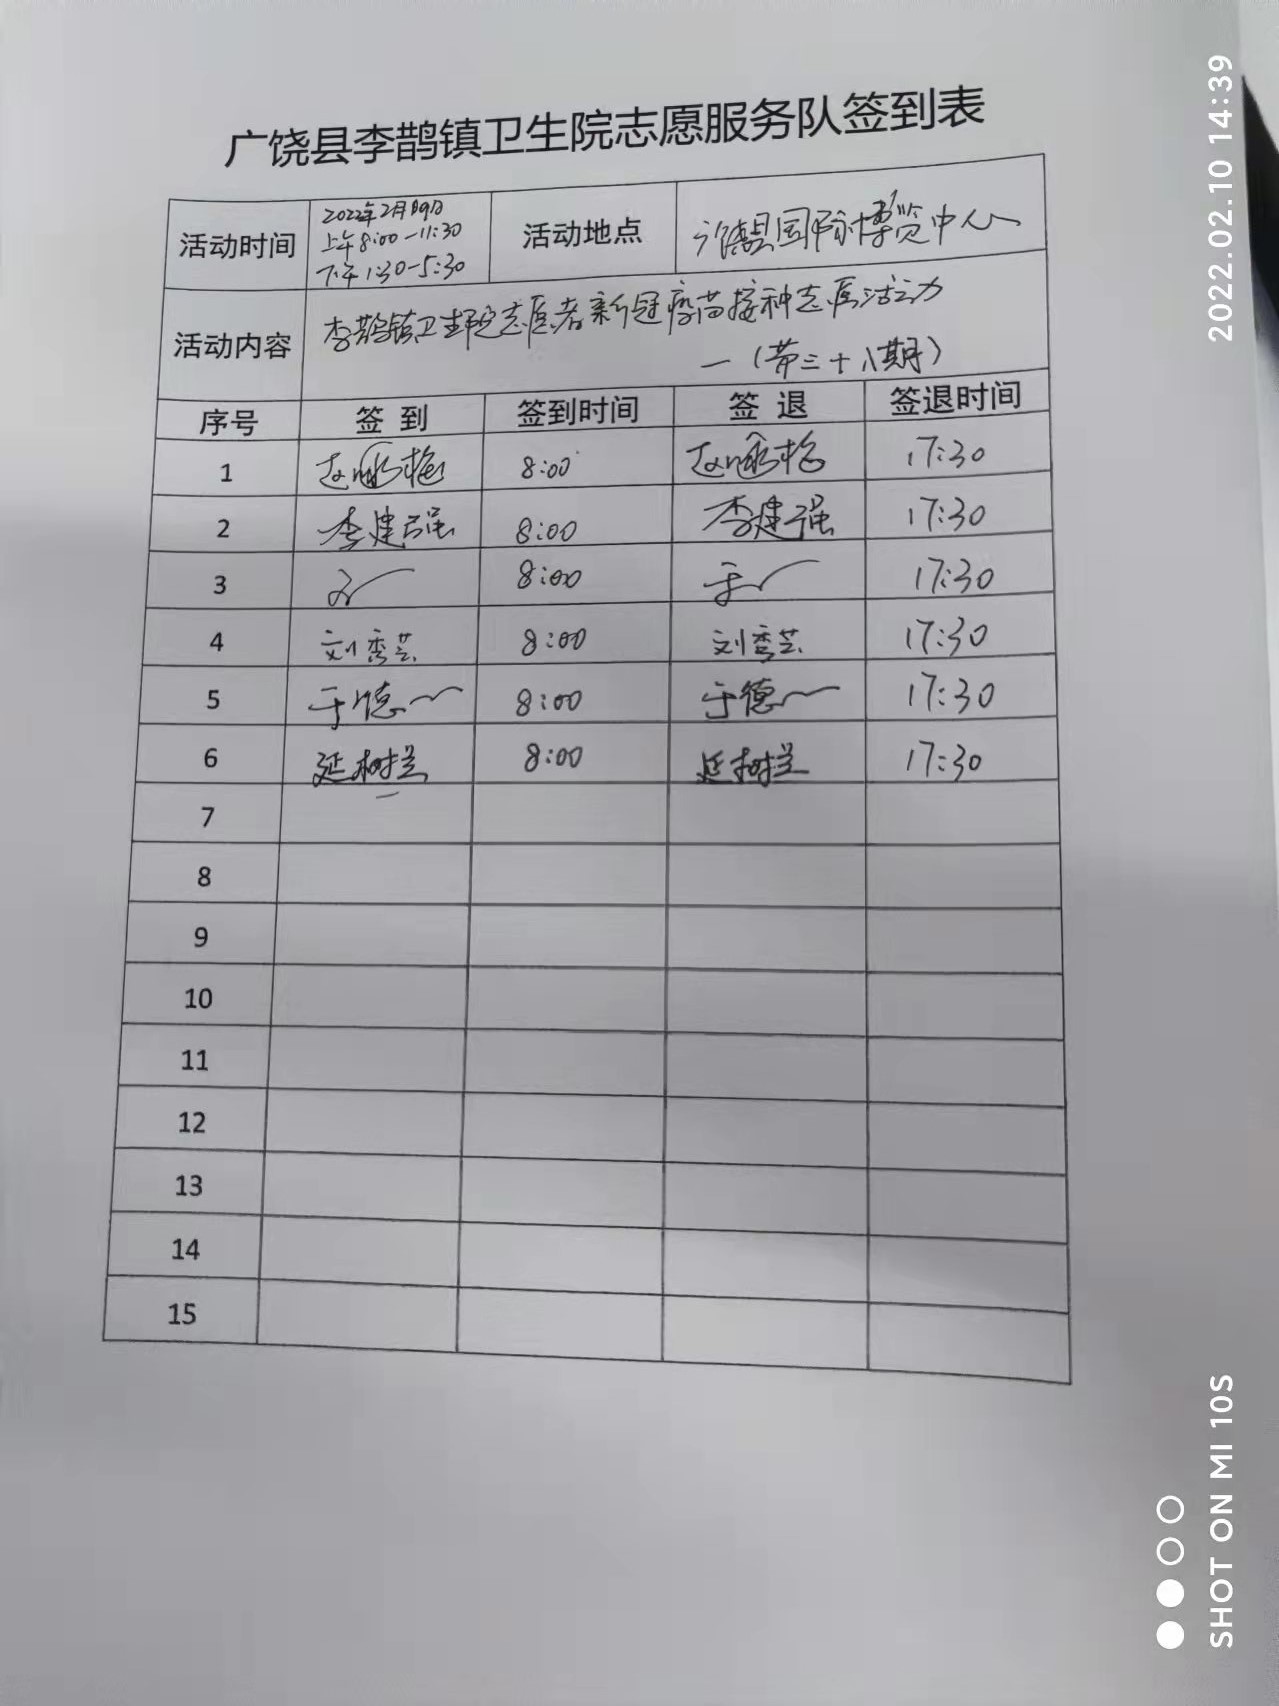 广饶县李鹊镇卫生院志愿服务队签到表
活动时间 2022年2月09日 活动地点 广饶县国际博览中心
上午8:00-11:30
下午1:30-5:30
活动内容 李鹊镇卫生院志愿者新冠疫苗接种志愿活动
—(第三十八期)
序号 签到 签到时间 签退 签退时间
1 8:00 17:30
2 李建强 8:00 李建强 17:30
3 8:00 于 17:30
4 刘 8:00 刘 17:30
5 于德 8:00 于德 17:30
6 延树兰 8:00 延树兰 17:30
7
8
9
10
11
12
13
14
15
2022.02.10 14:39
SHOT ON MI 10S